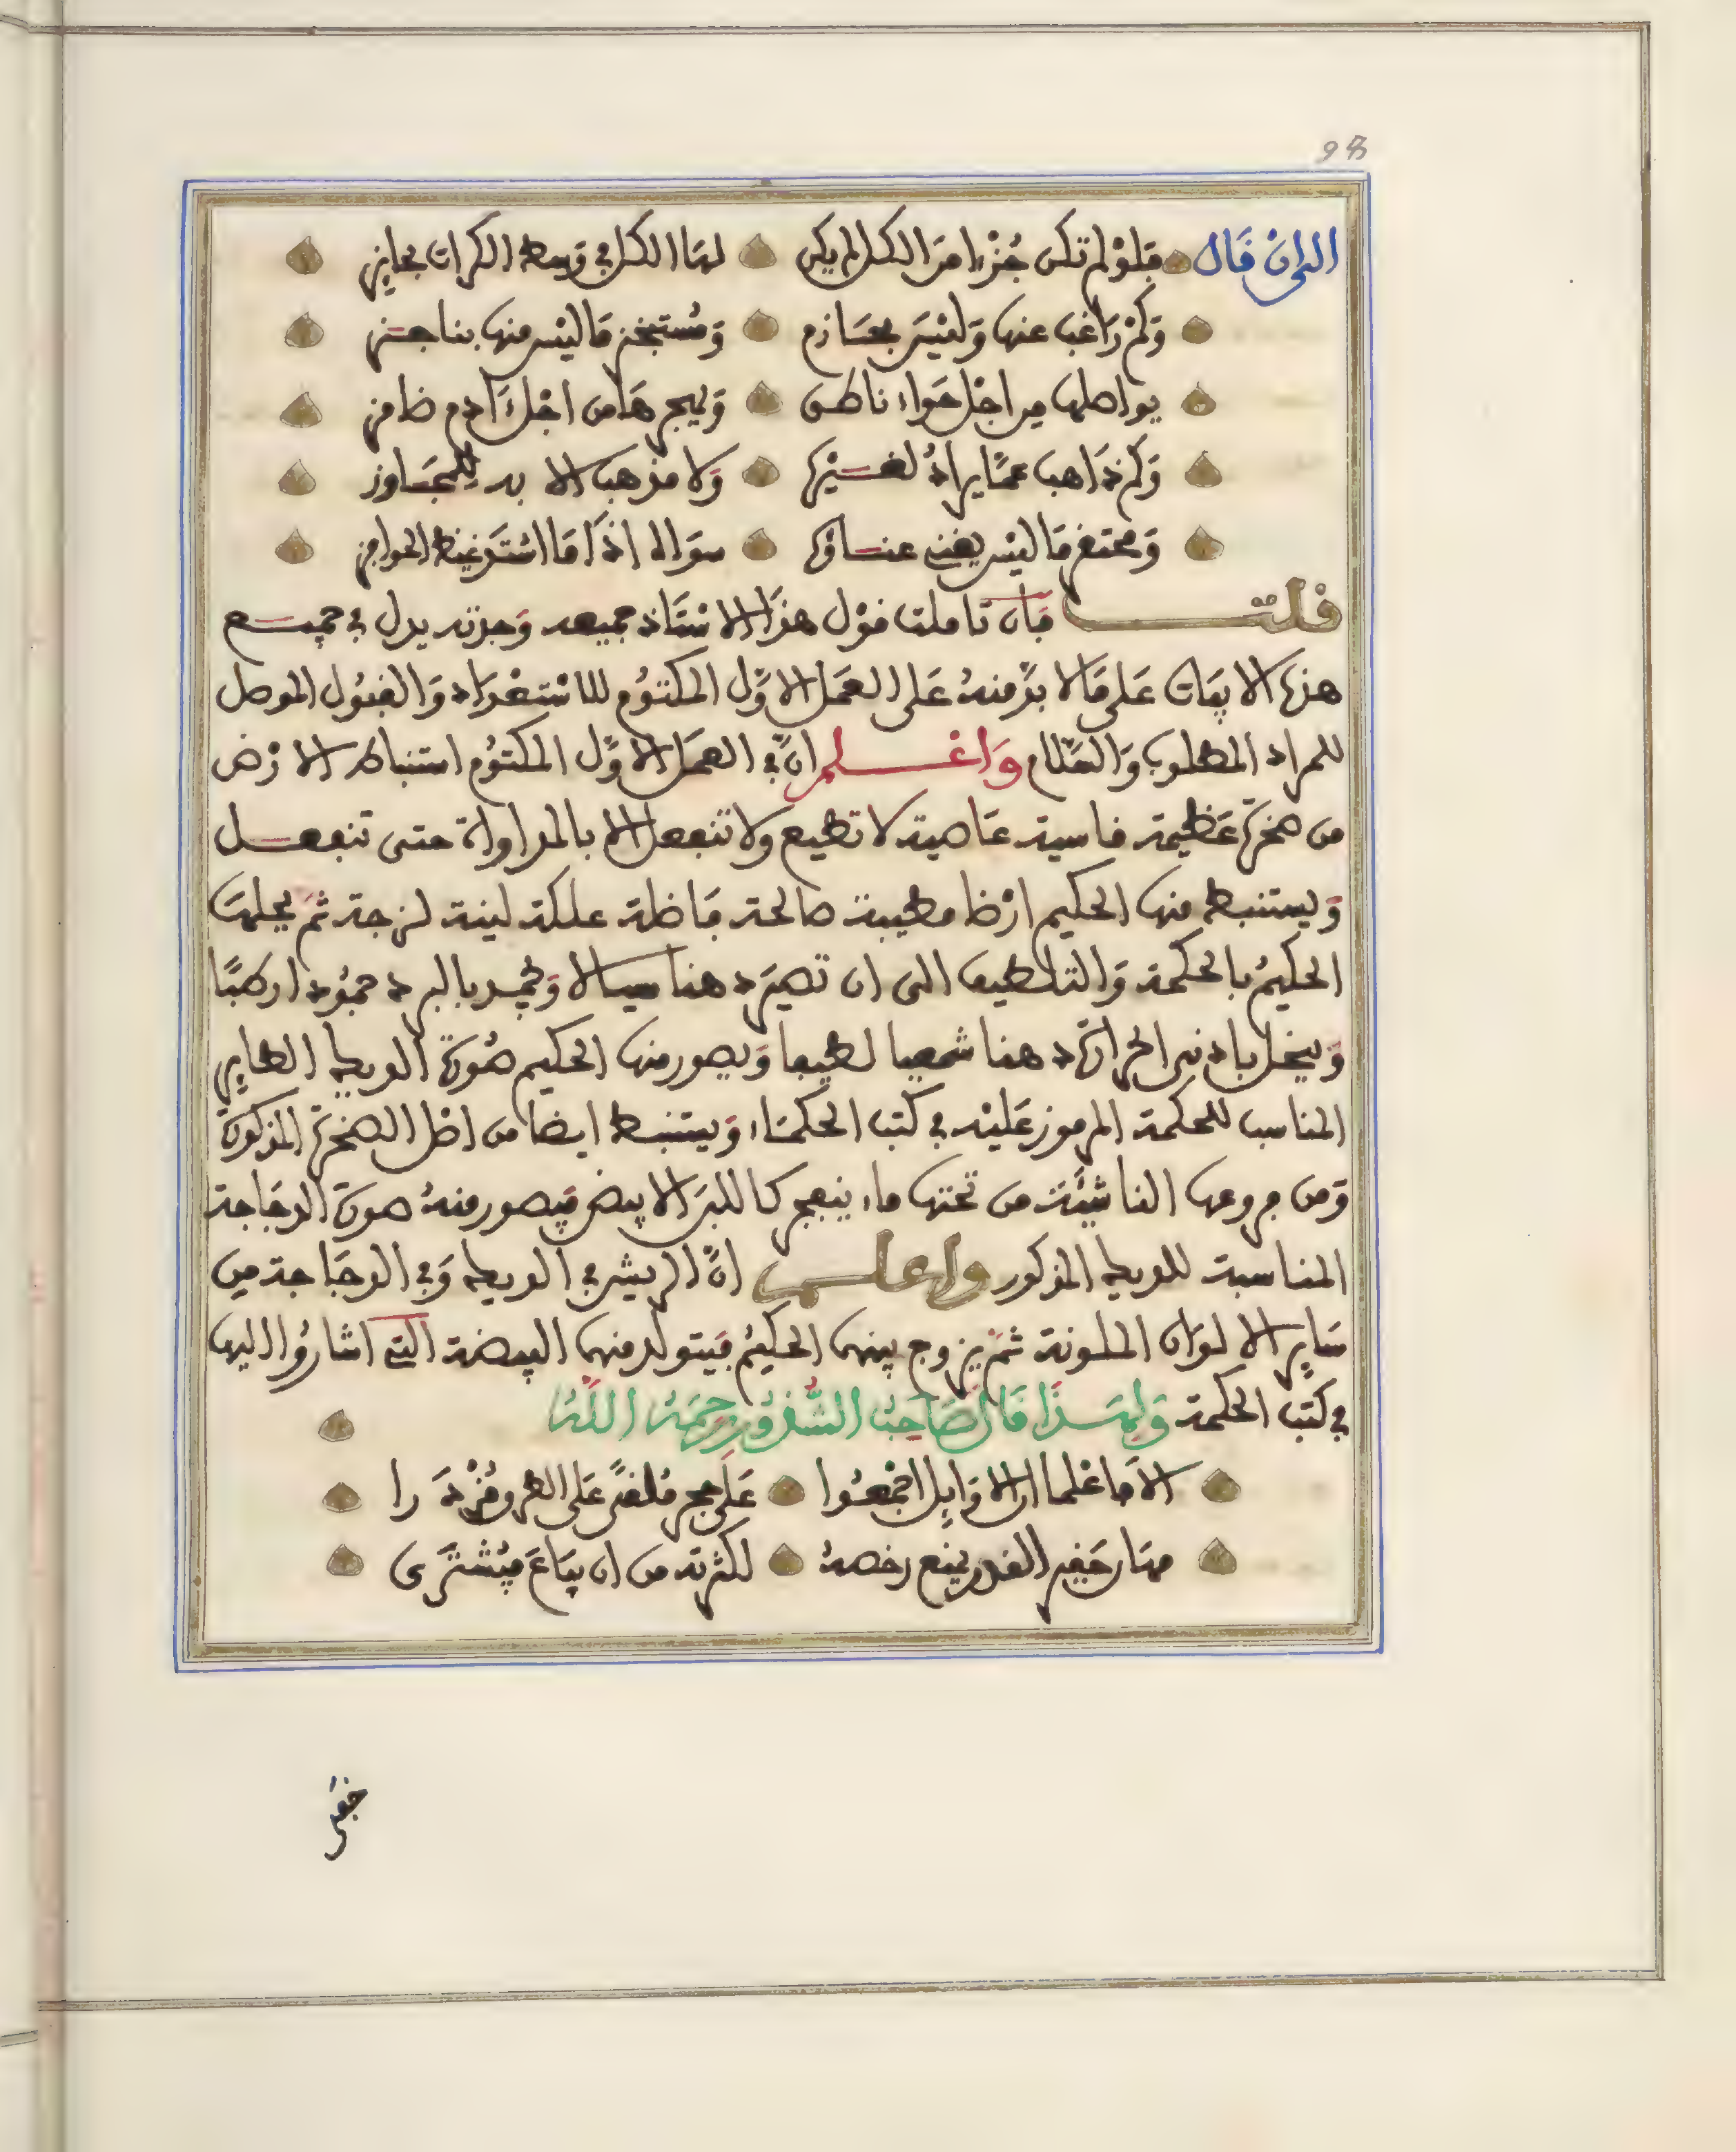 98
الى ان قال فلو لم تكن جزءا من الكل لم يكن لها الكل في وسط الكرات بحايز
وكم راغب عنها وليس بعازم ومستنجز ما ليس منها بناجز
يواصلها من اجل حواء ناطق ويهجرها من اجل ءادم ضامز
وكم ذاهب عما يراد لغيرها ولا مذهب الا به للمجاوز
ومحتقر ما ليس يغني غناؤها سواه اذا ما استرغبته الحوامز
قلت فان تاملت قول هذا الاستاذ جميعه وجدته يدل في جميع
هذه الابيات على ما لا بد منه على العمل الاول المكتوم للاستعداد والقبول الموصل
للمراد المطلوب والسلام واعلم ان في العمل الاول المكتوم استنباط الارض
من صخرة عظيمة قاسية عاصية لا تطيع ولا تنفعل الا بالمداواة حتى تنفعل
ويستنبط منها الحكيم ارضا طيبة صالحة فاضلة علكة لينة لزجة ثم يحلها
الحكيم بالحكمة والتلطيف الى ان تصير دهنا سيالا وتجمد بالبرد جمودا رطبا
وينحل بادنى الحرارة دهنا شمعيا لطيفا ويصور منها الحكيم صورة الديك الطاير
المناسب للحكمة المرموز عليه في كتب الحكماء ويستنبط ايضا من اصل الصخرة المذكورة
ومن فروعها الناشئة من تحتها ماء ينفجر كاللبن الابيض فيصور منه صورة الدجاجة
المناسبة للديك المذكور واعلم ان الريش في الديك وفي الدجاجة من
ساير الالوان الملونة ثم يزوج بينها الحكيم فيتولد منهما البيضة التي اشاروا اليها
في كتب الحكمة ولهذا قال صاحب الشذور رحمه الله
الا فاعلما ان الاوايل اجمعوا على حجر ملقى على الطرق مزدرا
مهان حقير القدر يمنع رخصه لكثرته من ان يباع فيشترى